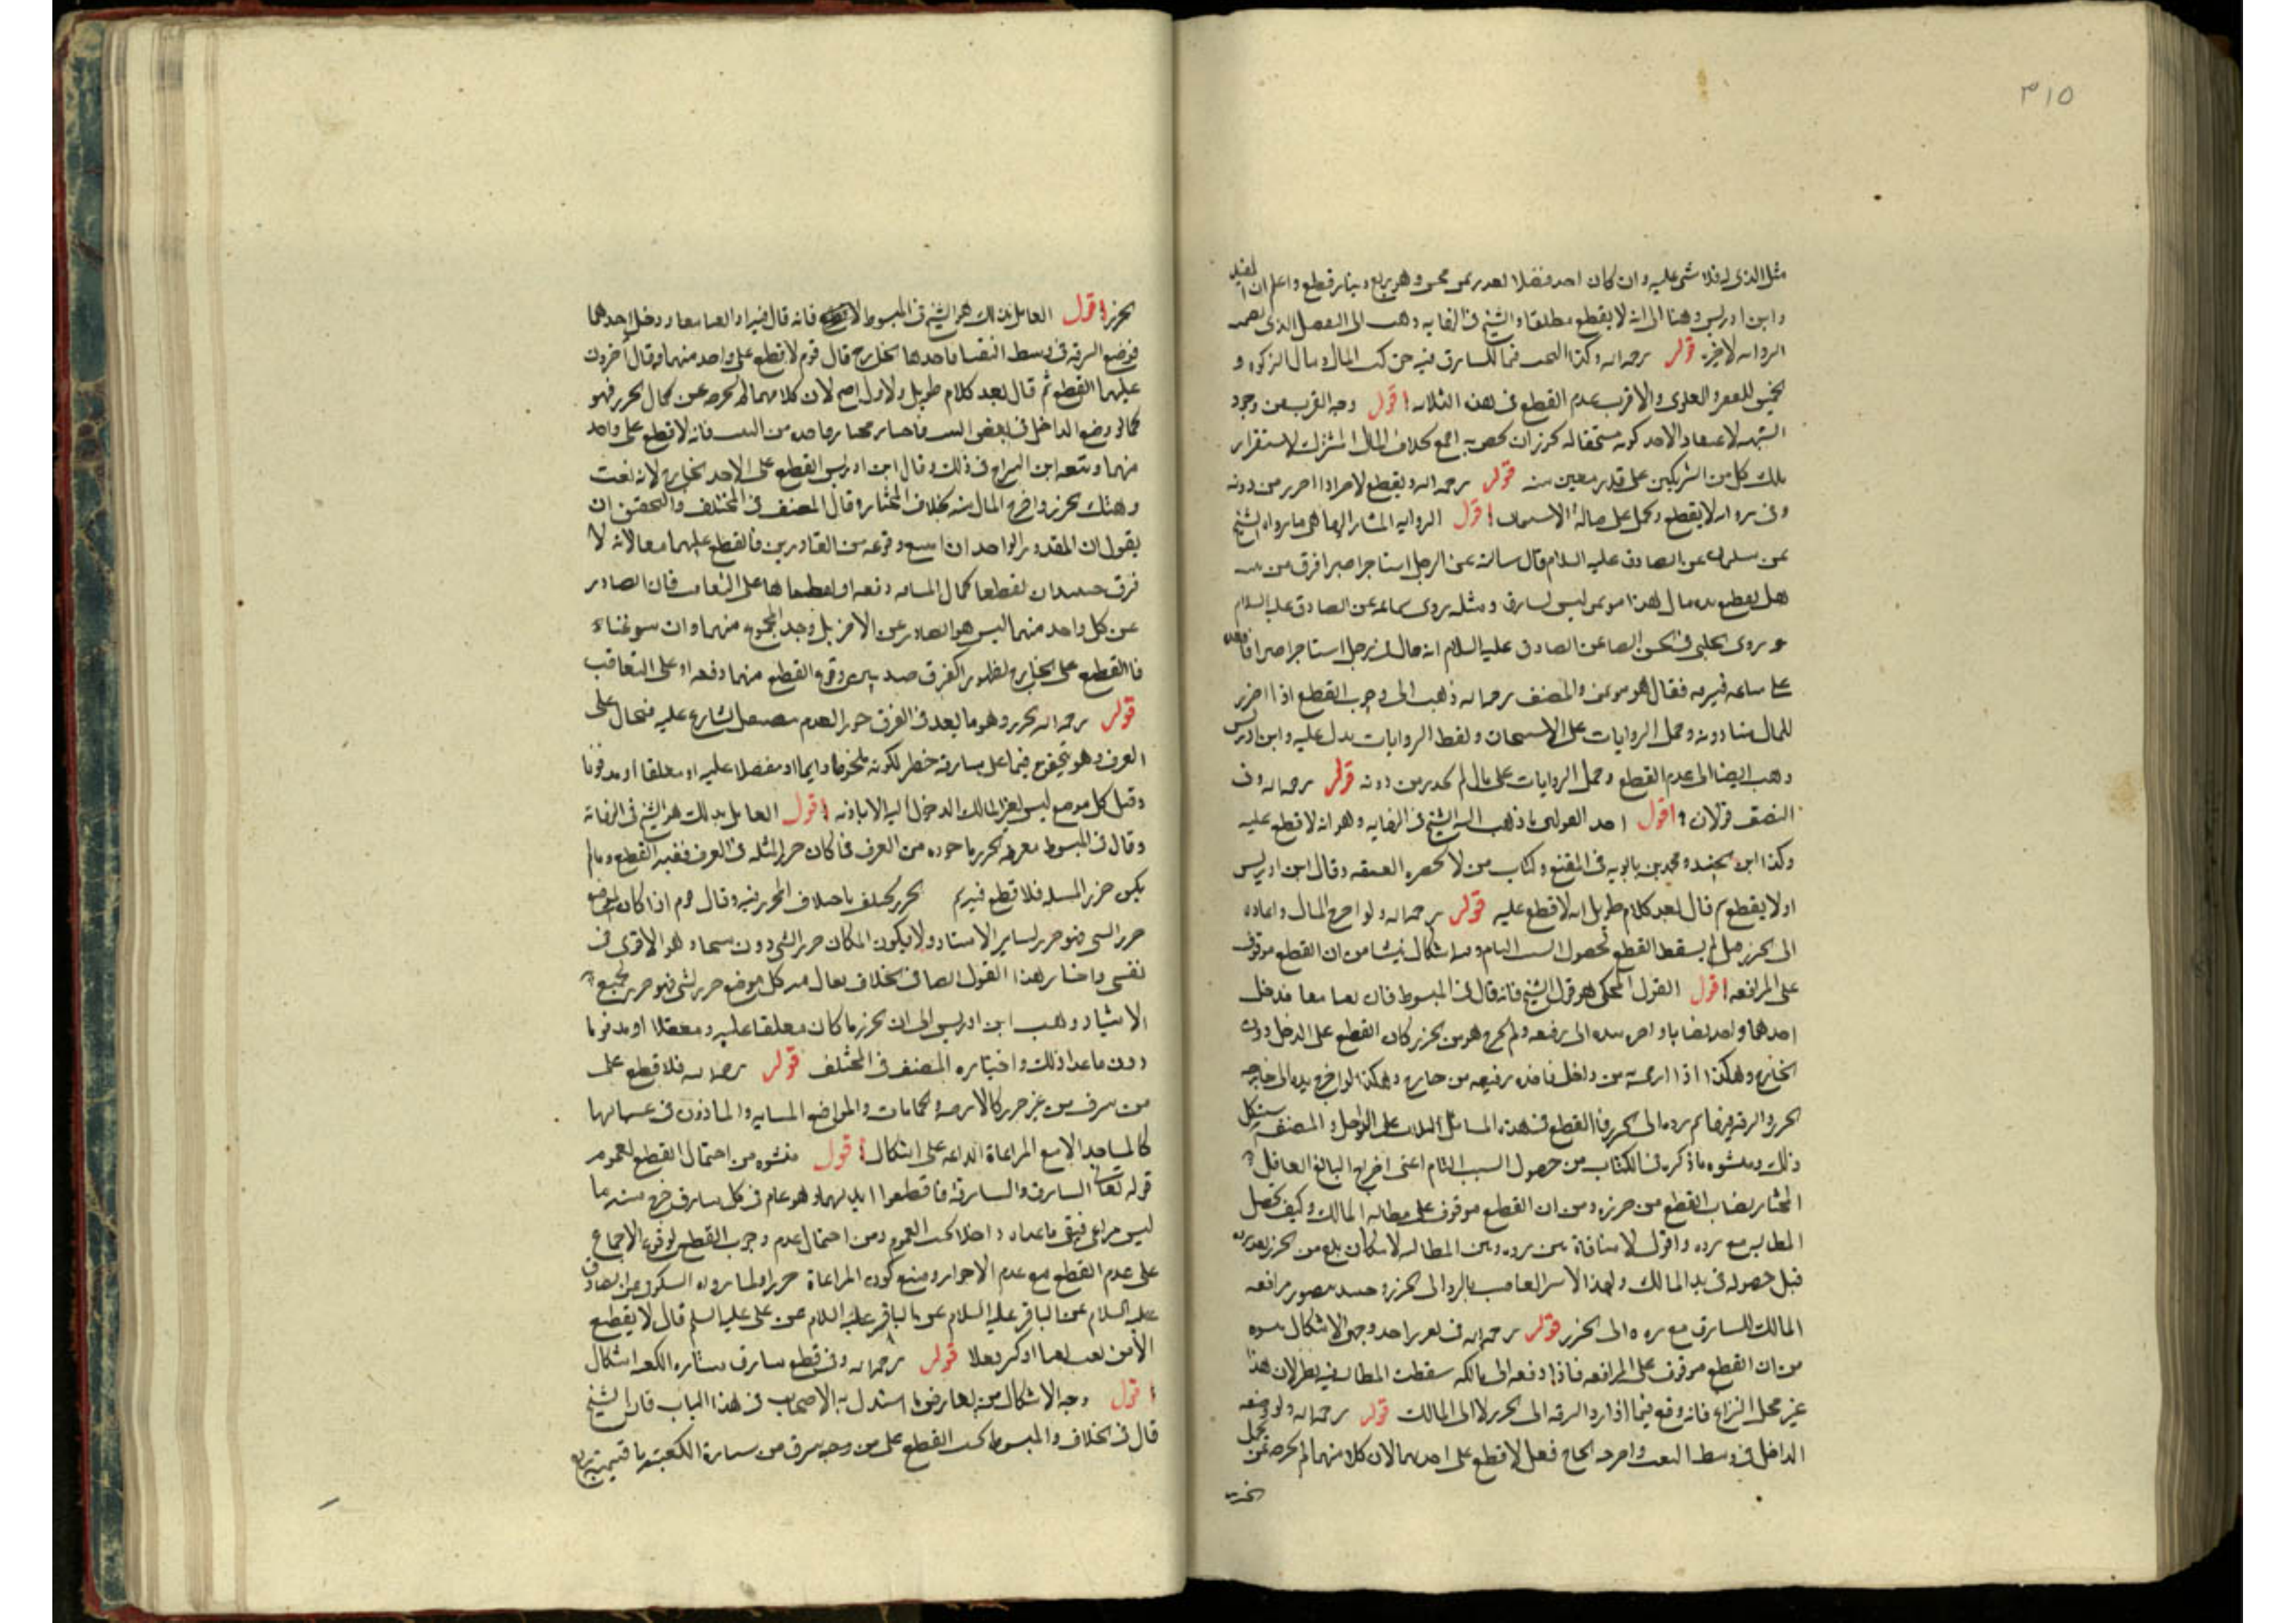 ٣١٥
مثل الذى له فلا شى عليه وان كان احد فضلا بعدر وهو ربع دينار قطع واعلم ان المفيد
وابن ادريس وهنا الى انه لا يقطع مطلقا والشيخ فى النهايه دهب الى التفصل الذى
الروايه الاخيره قوله رحمه الله وكذا البحث فيما للسارق فيه حق كبيت المال ومال الزكوه و
الخمس للفقير والعلوى والاقرب عدم القطع فى هذه الثلاثه اقول وجه القرب من وجود
الشبهه لاعتقاد الاحد كونه مستحقا له يجوز ان يختص به اجمع بخلاف المال المشترك لاستقرار
ملك كل من الشريكين على قدر معين منه قوله رحمه الله ويقطع الاجير اذا احرز من دونه
وفى روايه لا يقطع وتحمل على حاله الاستيمان اقول الروايه المشار اليها هى ما رواه الشيخ
عن سليمان عن الصادق عليه السلام قال سالته عن الرجل استاجر اجيرا فسرق من بيته
هل يقطع يده قال هذا موتمن ليس بسارق ومثله روى سماعه عن الصادق عليه السلام
وروى الحلبى فى الحسن ايضا عن الصادق عليه السلام انه قال فى رجل استاجر اجيرا فاقعده
على متاعه فسرقه فقال هو موتمن والمصنف رحمه الله ذهب الى وجوب القطع اذا احرز
المال من دونه وحمل الروايات على الاستيمان ولفظ الروايات يدل عليه وابن ادريس
دهب ايضا الى عدم القطع وحمل الروايات على مال لم يحرز من دونه قوله رحمه الله وفى
الضيف قولان اقول احد القولين ما ذهب اليه الشيخ فى النهايه وهو انه لا قطع عليه
وكذا ابن الجنيد ومحمد بن بابويه فى المقنع وكتاب من لا يحضره الفقيه وقال ابن ادريس
اولا يقطع ثم قال بعد كلام طويل انه لا قطع عليه قوله رحمه الله ولو اخرج المال واعاده
الى الحرز قيل لم يسقط القطع لحصول السبب التام وفيه اشكال ينشا من ان القطع موقوف
على المرافعه اقول القول المحكى هو قول الشيخ فانه قال فى المبسوط فان نقبا معا فدخل
احدهما واخذ نصابا واخرج يده الى رفيقه ولم يخرج هو من الحرز كان القطع على الداخل دون
الخارج وهكذا اذا رمى به من داخل فاخذه رفيقه من خارج وهكذا لو اخرج يده الى خارج
الحرز والسرقه فيها ثم رده الى الحرز فالقطع فى هذه المسائل الثلاث على الداخل والمصنف يستشكل
ذلك ومنشوه ما ذكره فى الكتاب من حصول السبب التام اعنى اخراج البالغ العاقل
المختار نصاب القطع من حرزه ومن ان القطع موقوف على مطالبه المالك وكيف تحصل
المطالبه مع رده واقول لا منافاة بين رده وبين المطالبه لامكان تلفه من الحرز بعد رده
قبل حصوله فى يد المالك ولهذا لا يبرا الغاصب بالرد الى الحرز وحينئذ يتصور مرافعه
المالك للسارق مع رده الى الحرز قوله رحمه الله فى تحرير احد وجهى الاشكال
من ان القطع موقوف على المرافعه فاذا دفعه الى مالكه سقطت المطالبه فيه نظر لان هذا
غير محل النزاع فانه وقع فيما اذا رد السرقه الى الحرز لا الى المالك قوله رحمه الله ولو وضعه
الداخل فى وسط النقب واخرجه الخارج قيل لا قطع على احدهما لان كلا منهما لم يخرجه عن كمال
الحرز
الحرز اقول القائل بذلك هو الشيخ فى المبسوط فانه قال فيه اذا نقبا معا ودخل احدهما
فوضع السرقه فى وسط النقب فاخذها الخارج قال قوم لا قطع على واحد منهما وقال آخرون
عليهما القطع ثم قال بعد كلام طويل والاول اصح لان كلا منهما لم يخرجه عن كمال الحرز فهو
كما لو وضع الداخل فى بعض النقب فاجتاز مجتاز فاخذه من النقب فانه لا قطع على واحد
منهما وتبعه ابن البراج فى ذلك وقال ابن ادريس القطع على الاخذ الخارج لانه نقب
وهتك الحرز واخرج المال منه بخلاف المختار وقال المصنف فى المختلف والتحقيق ان
يقول ان المقدور الواحد ان امتنع وقوعه من القادرين فالقطع عليهما معا لانه لا
فرق حينئذ ان يقطعا كمال المسافه دفعه او يقطعاها على التعاقب فان الصادر
عن كل واحد منهما ليس هو الصادر عن الاخر بل وجد المجموع منهما وان سوغناه
فالقطع على الخارج لظهور الفرق حينئذ بين وقوع القطع منهما دفعه او على التعاقب
قوله رحمه الله الحرز وهو ما يعد فى العرف حرزا لعدم تنصيص الشارع عليه فيحال على
العرف وهو يتحقق فيما على سارقه خطر لكونه ملحوظا دايما او مقفلا عليه او مغلقا او مدفونا
وقيل كل موضع ليس لغير المالك الدخول اليه الا باذنه اقول القائل بذلك هو الشيخ فى النهايه
وقال فى المبسوط معرفه الحرز ماخوذه من العرف فما كان حرزا لمثله فى العرف ففيه القطع وما لم
يكن حرزا لمثله فلا قطع فيه ثم الحرز يختلف باختلاف المحرز فيه وقال قوم اذا كان الموضع
حرز الشى فهو حرز لساير الاشياء ولا يكون المكان حرزا لشى دون شى وهو الاقوى فى
نفسى واختار هذا القول ايضا فى الخلاف فقال فيه كل موضع حرز لشى فهو حرز لجميع
الاشياء وذهب ابن ادريس الى ان الحرز ما كان مغلقا عليه ومقفلا او مدفونا
دون ما عدا ذلك واختاره المصنف فى المختلف قوله رحمه الله فلا قطع على
من سرق من غير حرز كالارحيه والحمامات والمواضع المنتابه والماذون فى غشيانها
كالمساجد الا مع المراعاة الدائمه على اشكال اقول منشوه من احتمال القطع لعموم
قوله تعالى السارق والسارقة فاقطعوا ايديهما وهو عام فى كل سارق خرج منه ما
ليس مراعى فيبقى ما عداه داخلا تحت العموم ومن احتمال عدم وجوب القطع لوقوع الاجماع
على عدم القطع مع عدم الاحراز ومنع كون المراعاة حرزا ولما رواه السكونى عن الصادق
عليه السلام عن الباقر عليه السلام عن على عليه السلم قال لا يقطع
الا من نقب نقبا او كسر قفلا قوله رحمه الله وفى قطع سارق ستاره الكعبه اشكال
اقول وجه الاشكال من تعارض ما استدل به الاصحاب فى هذا الباب فان الشيخ
قال فى الخلاف والمبسوط يجب القطع على من سرق من ستارة الكعبه ما قيمته ربع